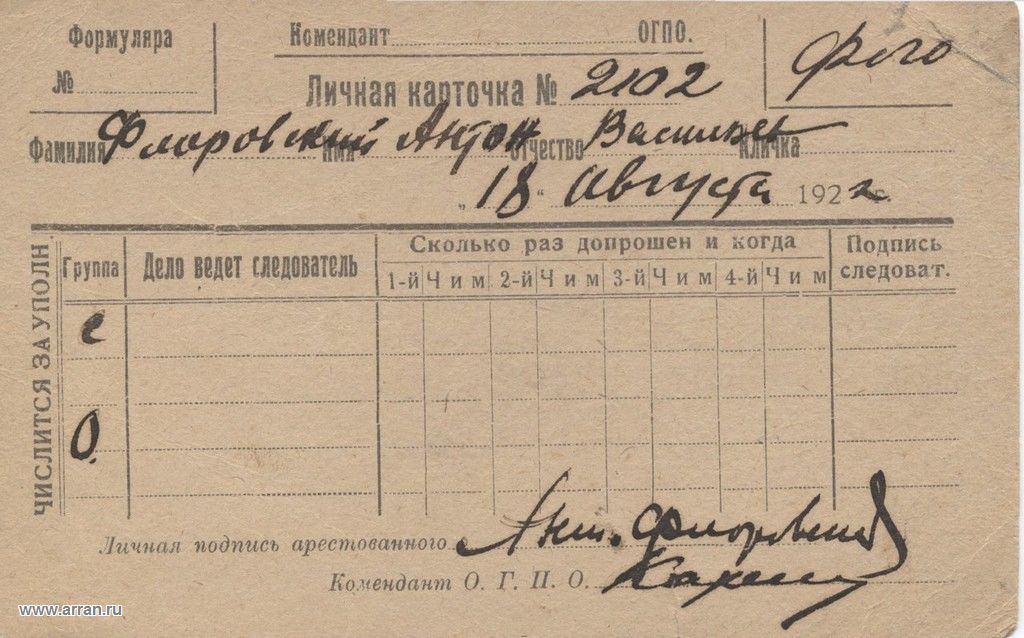 Формуляра
№
Комендант ОГПО.
Фото
Личная карточка № 2102
Фамилия Флоровский имя Антон отчество Васильев кличка
„18“ Августа 1922 г.
ЧИСЛИТСЯ ЗА УПОЛН
Группа Дело ведет следователь Сколько раз допрошен и когда Подпись следоват.
1-й Ч и м 2-й Ч и м 3-й Ч и м 4-й Ч и м
С
О.
Личная подпись арестованного Ант. Флоровский
Комендант О. Г. П. О.
www.arran.ru